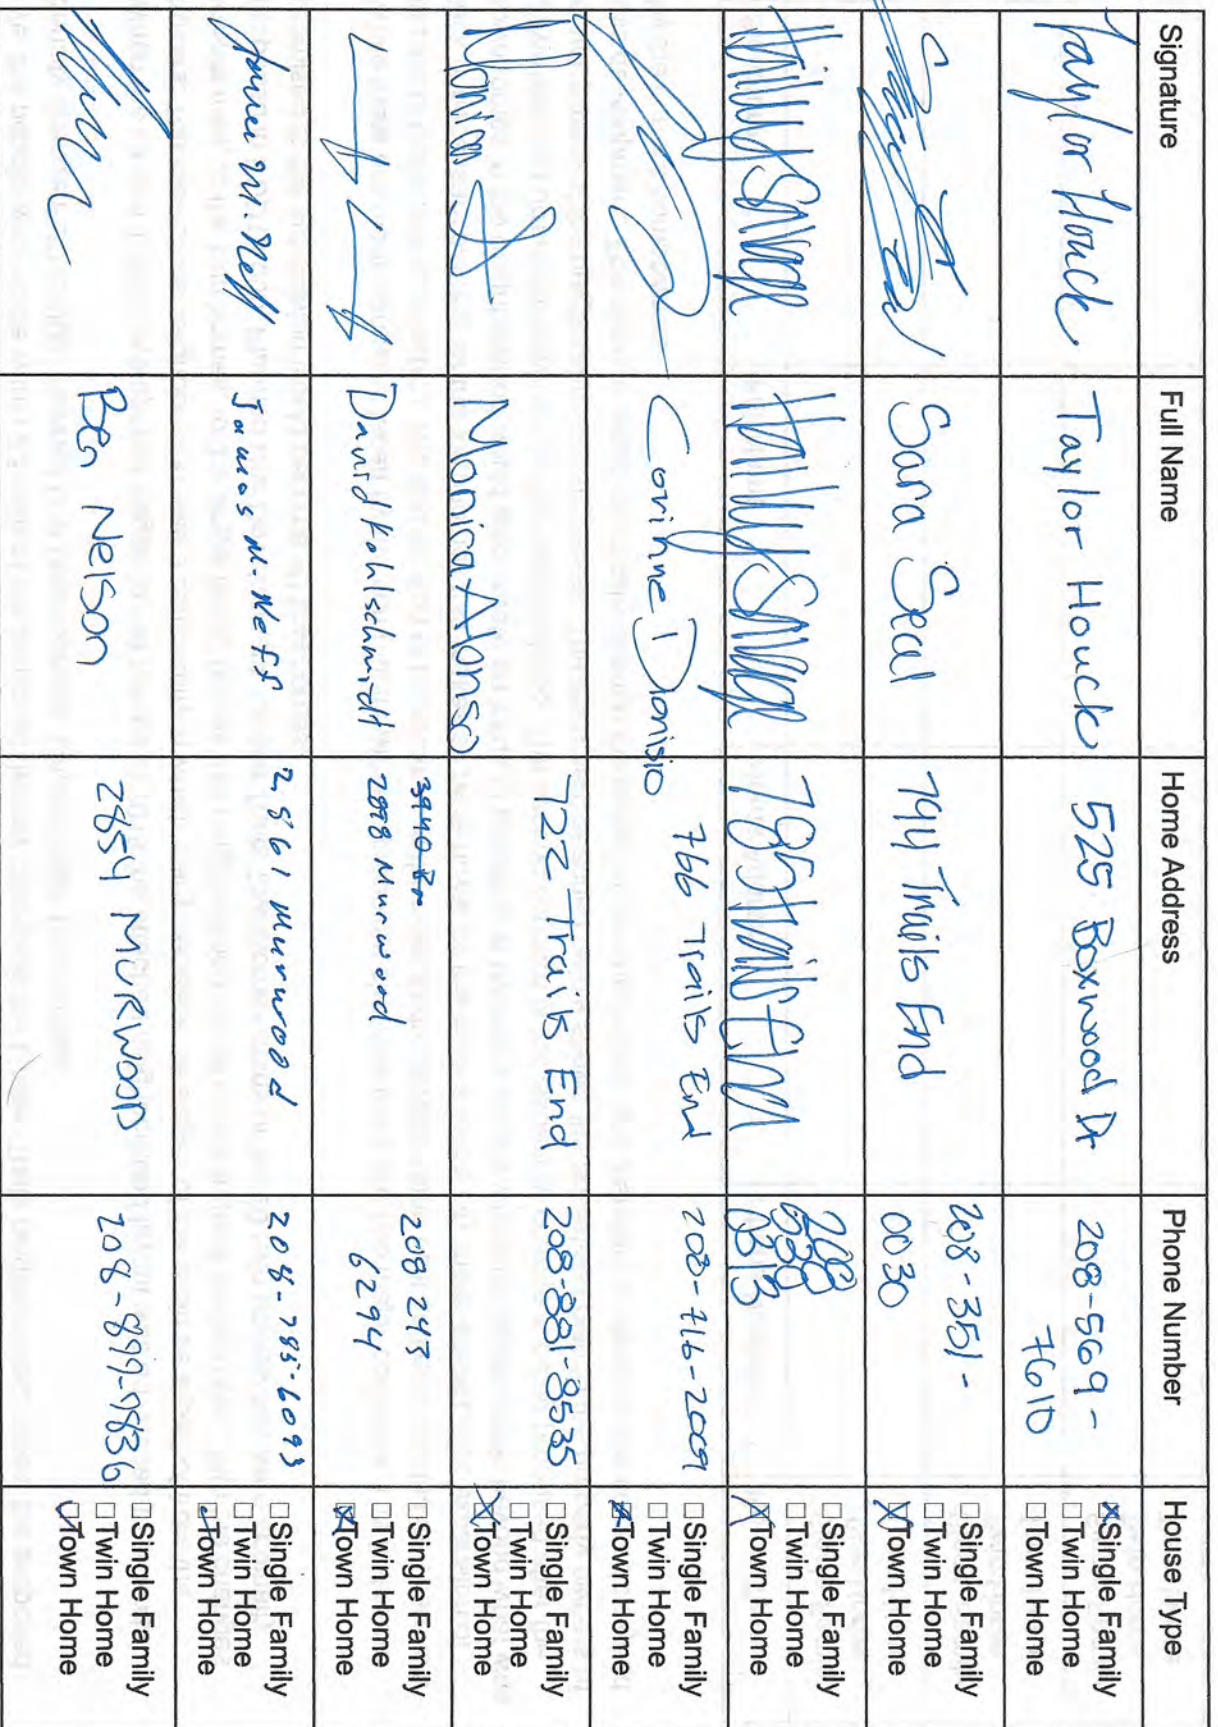 Signature Full Name Home Address Phone Number House Type
Taylor Houck Taylor Houck 525 Boxwood Dr 208-569-
7610
☒Single Family
☐Twin Home
☐Town Home
Sara Seal 794 Trails End 208-351-
0030
☐Single Family
☐Twin Home
☒Town Home
785 Trails End 208
0313
☐Single Family
☐Twin Home
☒Town Home
Corinne Dionisio 766 Trails End 208-716-2009
☐Single Family
☐Twin Home
☒Town Home
Monica Monica Alonso 722 Trails End 208-881-8535
☐Single Family
☐Twin Home
☒Town Home
David Kohlschmidt 2898 Murwood 208 243
6294
☐Single Family
☐Twin Home
☒Town Home
James M. Neff James M. Neff 2861 Murwood 208-785-6093
☐Single Family
☐Twin Home
☑Town Home
Ben Nelson 2854 MURWOOD 208-899-9836
☐Single Family
☐Twin Home
☑Town Home